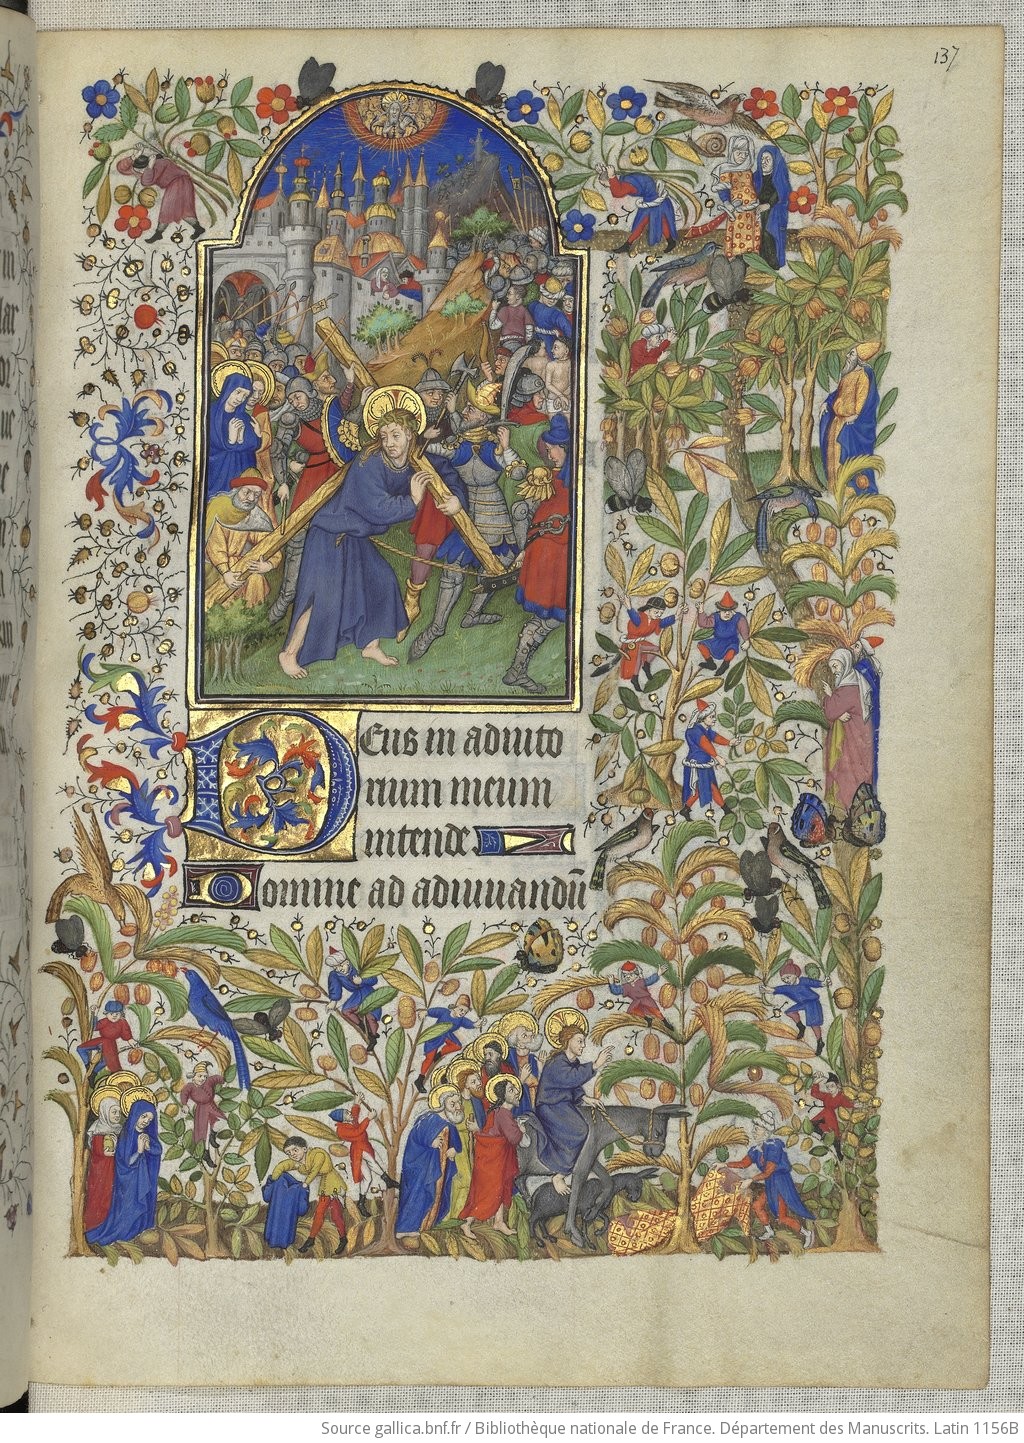 137
Deus in adiuto
rium meum
intende.
Domine ad adiuuandū
Source gallica.bnf.fr / Bibliothèque nationale de France. Département des Manuscrits. Latin 1156B